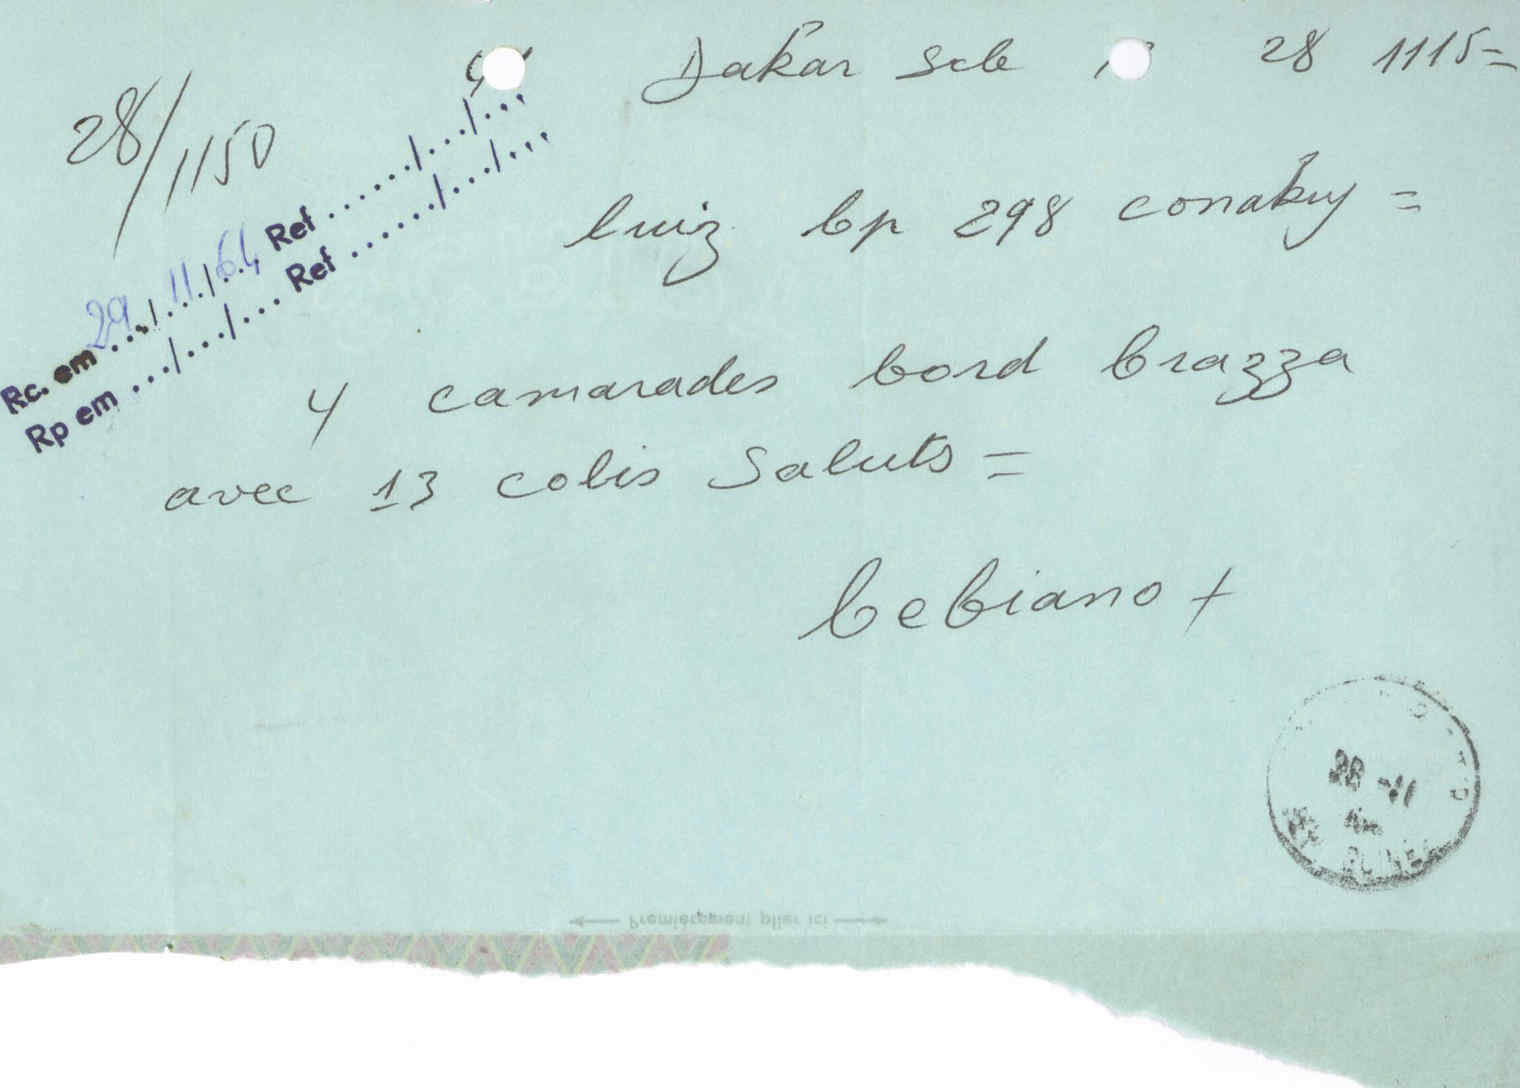 Dakar 28 1115=
28/1150
luiz bp 298 conakry =
Rc. em 29/11/64 Ref ....../.../...
Rp em .../.../... Ref ....../.../...
4 camarades bord brazza
avec 13 colis Saluts =
bebiano +
Premièrement plier ici